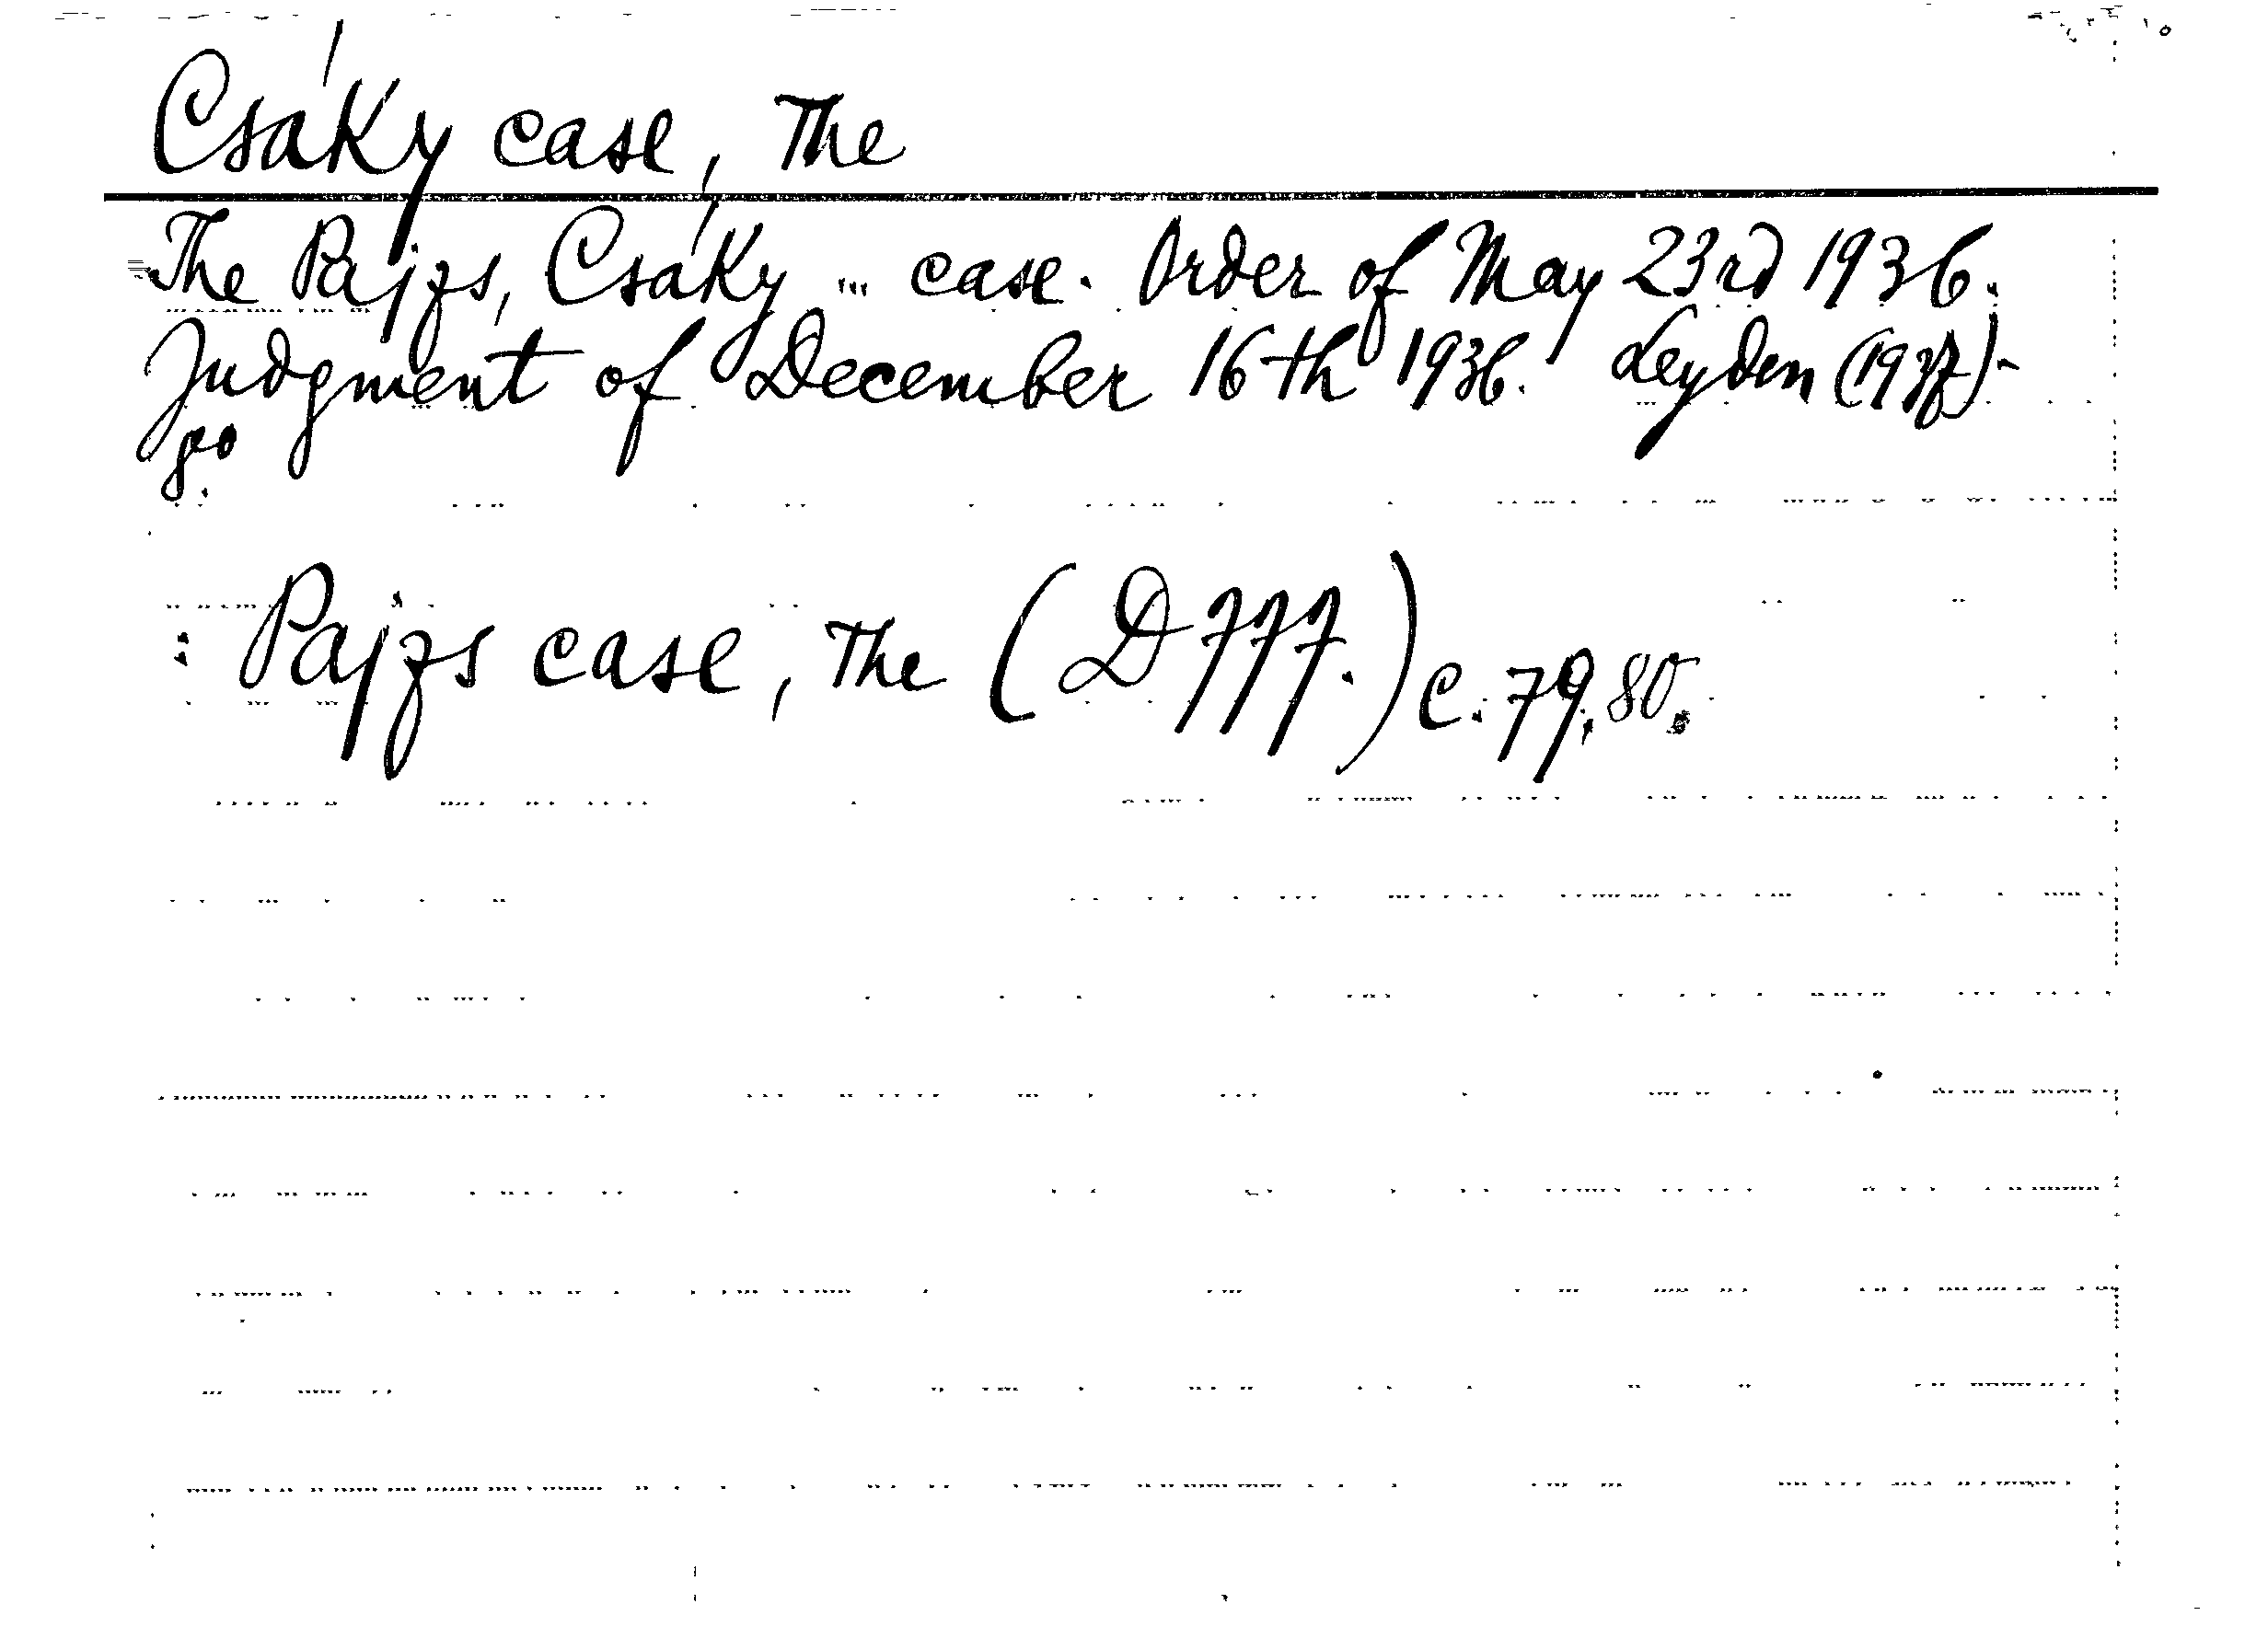 Csáky case, The
The Pajzs, Csáky ... case. Order of May 23rd 1936.
Judgment of December 16th 1936. Leyden (1937)-
8o
: Pajzs case, The (D 777.) C. 79, 80.